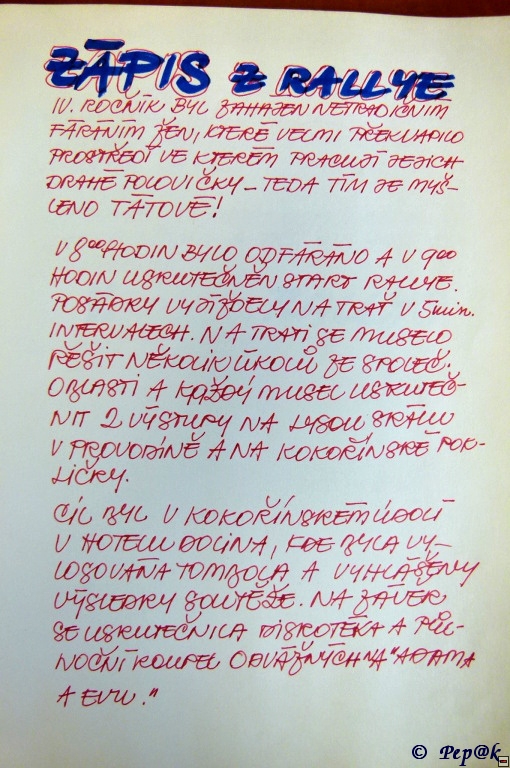 ZÁPIS Z RALLYE
IV. ROČNÍK BYL ZAHÁJEN NETRADIČNÍM
FÁRÁNÍM ŽEN, KTERÉ VELMI PŘEKVAPILO
PROSTŘEDÍ VE KTERÉM PRACUJÍ JEJICH
DRAHÉ POLOVIČKY – TEDA TÍM JE MYŠ-
LENO TÁTOVÉ!
V 8⁰⁰ HODIN BYLO ODFÁRÁNO A V 9⁰⁰
HODIN USKUTEČNĚN START RALLYE.
POSÁDKY VYJÍŽDĚLY NA TRAŤ V 5 min.
INTERVALECH. NA TRATI SE MUSELO
ŘEŠIT NĚKOLIK ÚKOLŮ ZE SPOLEČ.
OBLASTI A KAŽDÝ MUSEL USKUTEČ-
NIT 2 VÝSTUPY NA LYSOU SKÁLU
V PROVODÍNĚ A NA KOKOŘÍNSKÉ POK-
LIČKY.
CÍL BYL V KOKOŘÍNSKÉM ÚDOLÍ
V HOTELU DOLINA, KDE BYLA VY-
LOSOVÁNA TOMBOLA A VYHLÁŠENY
VÝSLEDKY SOUTĚŽE. NA ZÁVĚR
SE USKUTEČNILA DISKOTÉKA A PŮL-
NOČNÍ KOUPEL ODVÁŽNÝCH NA "ADAMA
A EVU."
© Pep@k